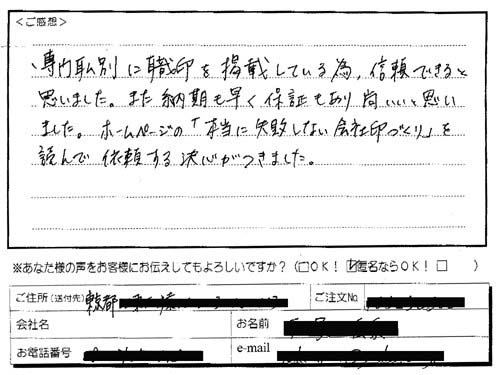 <ご感想>
専門取扱別に職印を掲載している為、信頼できると
思いました。また納期も早く保証もあり尚いいと思い
ました。ホームページの「本当に失敗しない会社印づくり」を
読んで依頼する決心がつきました。
※あなた様の声をお客様にお伝えしてもよろしいですか?(□OK! ☑匿名ならOK! □ )
ご住所(送付先) 東京都
ご注文No.
会社名
お名前
お電話番号
e-mail